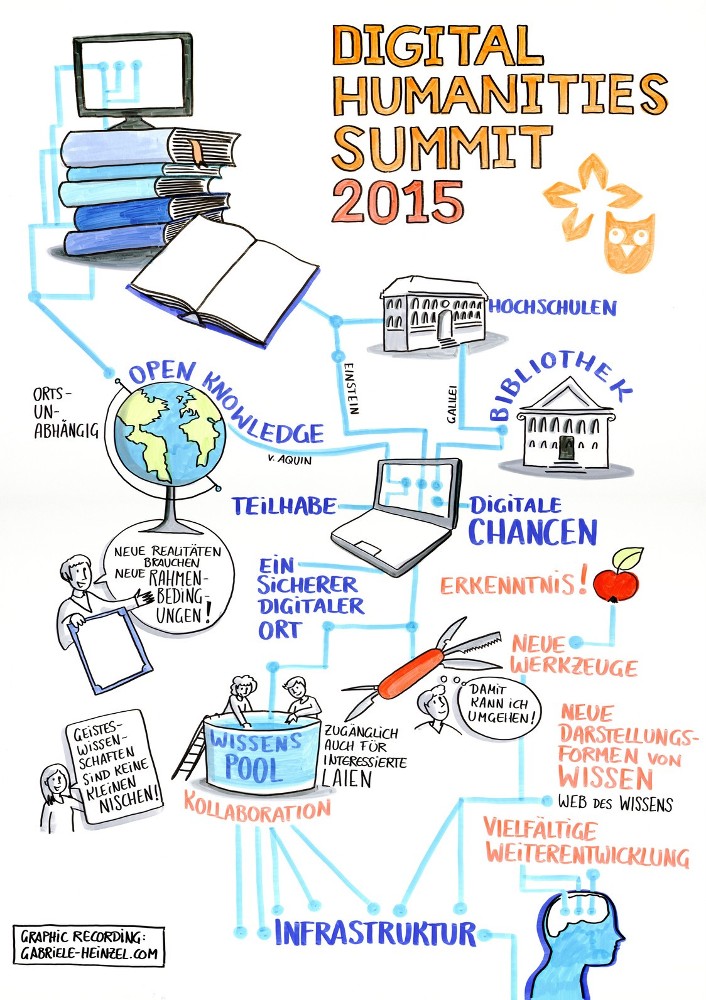 DIGITAL
HUMANITIES
SUMMIT
2015
HOCHSCHULEN
EINSTEIN
GALILEI
BIBLIOTHEK
OPEN KNOWLEDGE
V. AQUIN
ORTS-
UN-
ABHÄNGIG
TEILHABE
DIGITALE
CHANCEN
NEUE REALITÄTEN
BRAUCHEN
NEUE RAHMEN-
BEDING-
UNGEN!
EIN
SICHERER
DIGITALER
ORT
ERKENNTNIS!
NEUE
WERKZEUGE
DAMIT
KANN ICH
UMGEHEN!
GEISTES-
WISSEN-
SCHAFTEN
SIND KEINE
KLEINEN
NISCHEN!
WISSENS
POOL
ZUGÄNGLICH
AUCH FÜR
INTERESSIERTE
LAIEN
KOLLABORATION
NEUE
DARSTELLUNGS-
FORMEN VON
WISSEN
WEB DES WISSENS
VIELFÄLTIGE
WEITERENTWICKLUNG
INFRASTRUKTUR
GRAPHIC RECORDING:
GABRIELE-HEINZEL.COM